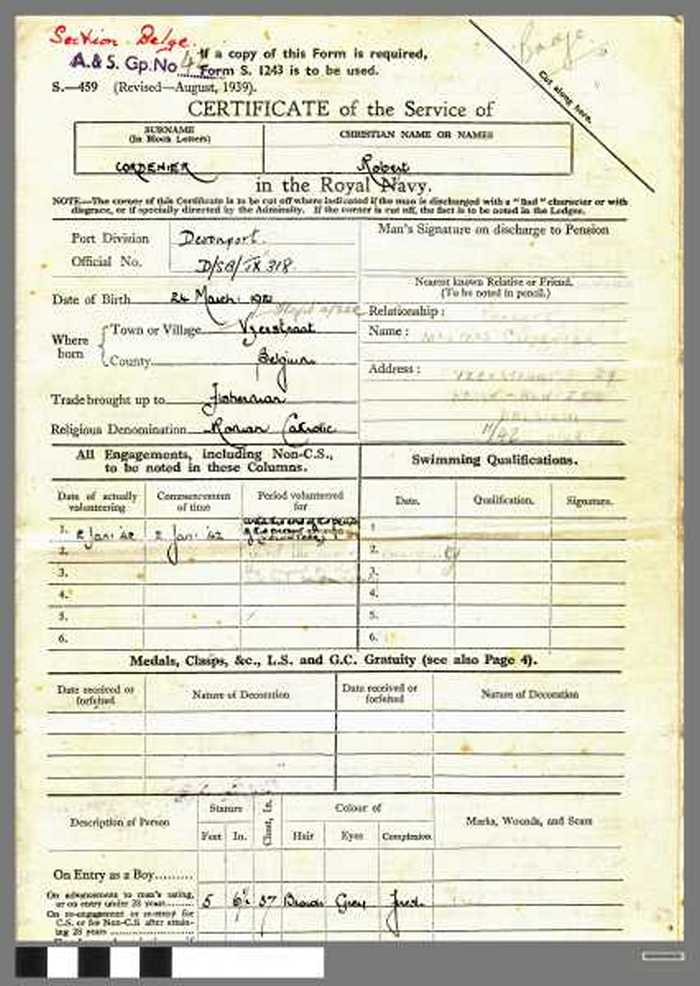 Section Belge.
If a copy of this Form is required,
A.& S. Gp. No
Form S. 1243 is to be used.
S.—459 (Revised—August, 1939).
Cut along here.
CERTIFICATE of the Service of
SURNAME
(In Block Letters)
CHRISTIAN NAME OR NAMES
CORDENIER
Robert
in the Royal Navy.
NOTE—The corner of this Certificate is to be cut off where indicated if the man is discharged with a "Bad" character or with
disgrace, or if specially directed by the Admiralty. If the corner is cut off, the fact is to be noted in the Ledger.
Port Division Devonport.
Man's Signature on discharge to Pension
Official No. D/SB/IX 318.
Nearest known Relative or Friend.
(To be noted in pencil.)
Date of Birth 24 March
Relationship :
Where born
Town or Village
Name :
County Belgium
Address :
Trade brought up to Fisherman
Religious Denomination Roman Catholic
11/42
All Engagements, including Non-C.S.,
to be noted in these Columns.
Swimming Qualifications.
Date of actually volunteering
Commencement of time
Period volunteered for
Date.
Qualification.
Signature.
1. 2 Jan: '42 2 Jan: '42
1
2.
2.
3.
3.
4.
4.
5.
5.
6.
6.
Medals, Clasps, &c., L.S. and G.C. Gratuity (see also Page 4).
Date received or forfeited
Nature of Decoration
Date received or forfeited
Nature of Decoration
Description of Person
Stature
Feet
In.
Chest, In.
Colour of
Hair
Eyes
Complexion
Marks, Wounds, and Scars
On Entry as a Boy
On advancement to man's rating,
or on entry under 28 years
5 37 Grey fresh
On re-engagement or re-entry for
C.S. or for Non-C.S. after attain-
ing 28 years